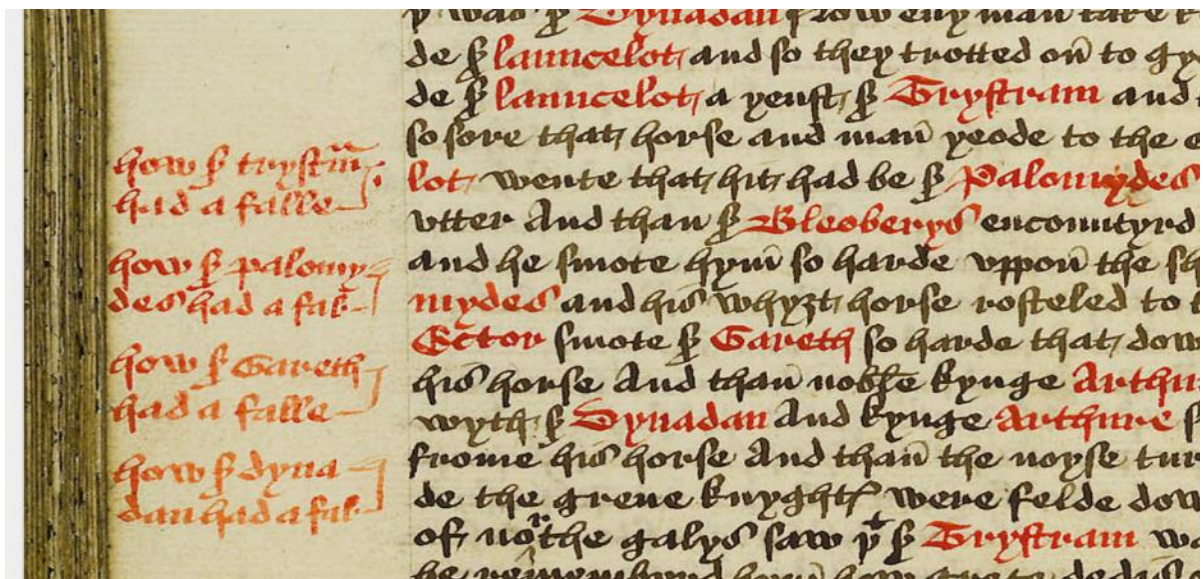 how ẜ trystm̃
had a falle
how ẜ palomy
des had a fal
how ẜ Gareth
had a falle
how ẜ dyna
dan had a fal
þͭ was þͭ Dynadan how eny man take
de ẜ launcelot and so they trotted on̄ to
de ẜ launcelot a yenst ẜ Trystram and
so sore that horse and man̄ yeode to the
lot wente that hit had be ẜ Palomydes
vtter And than ẜ Bleoberys encountyrd
and he smote hym̄ so harde vppon̄ the
mydes and his whyȝt horse rosteled to
Ector smote ẜ Gareth so harde that dow
his horse And than̄ noble kynge Arthu
wyth ẜ Dynadan And kynge Arthure
frome his horse And than̄ the noyse tur
de the grene knyght were felde dow
of northe galys saw þͭ ẜ Trystram
he remembird hym̄ how